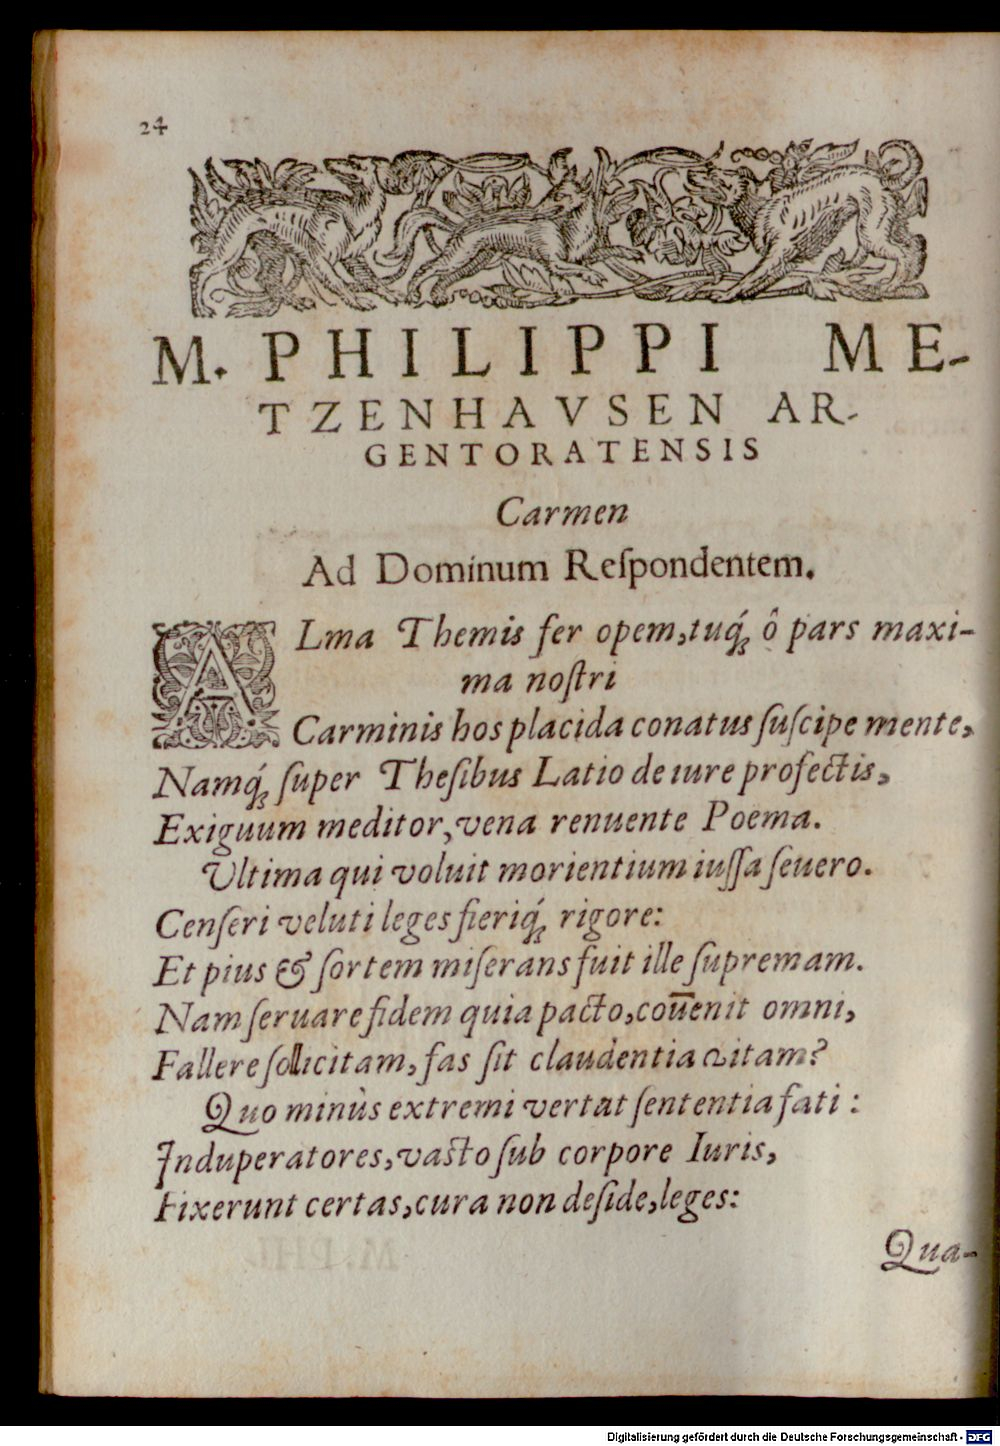 24
M. PHILIPPI ME-
TZENHAVSEN AR-
GENTORATENSIS
Carmen
Ad Dominum Reſpondentem.
ALma Themis fer opem, tuq́ꝫ ô pars maxi-
ma noſtri
Carminis hos placida conatus ſuſcipe mente,
Namq́ꝫ ſuper Theſibus Latio de iure profectis,
Exiguum meditor, vena renuente Poema.
Ultima qui voluit morientium iuſſa ſeuero.
Cenſeri veluti leges fieriq́ꝫ rigore:
Et pius & ſortem miſerans fuit ille ſupremam.
Nam ſeruare fidem quia pacto, coūenit omni,
Fallere ſollicitam, fas ſit claudentia vitam?
Quo minùs extremi vertat ſententia fati:
Induperatores, vaſto ſub corpore Iuris,
Fixerunt certas, cura non deſide, leges:
Qua-
Digitalisierung gefördert durch die Deutsche Forschungsgemeinschaft - DFG